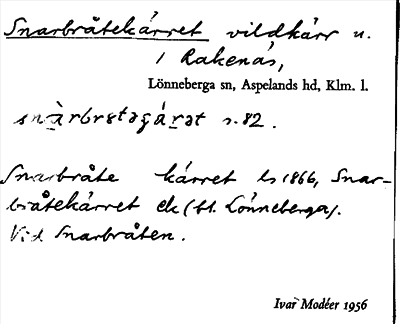 Snarbråtekärret vildkärr u.
/ Rakenäs,
Lönneberga sn, Aspelands hd, Klm. l.
snàrbrøtəgárət s. 82.
Snarbråte kärret ls 1866, Snar-
bråtekärret ek (bl. Lönneberga).
Vid Snarbråten.
Ivar Modéer 1956